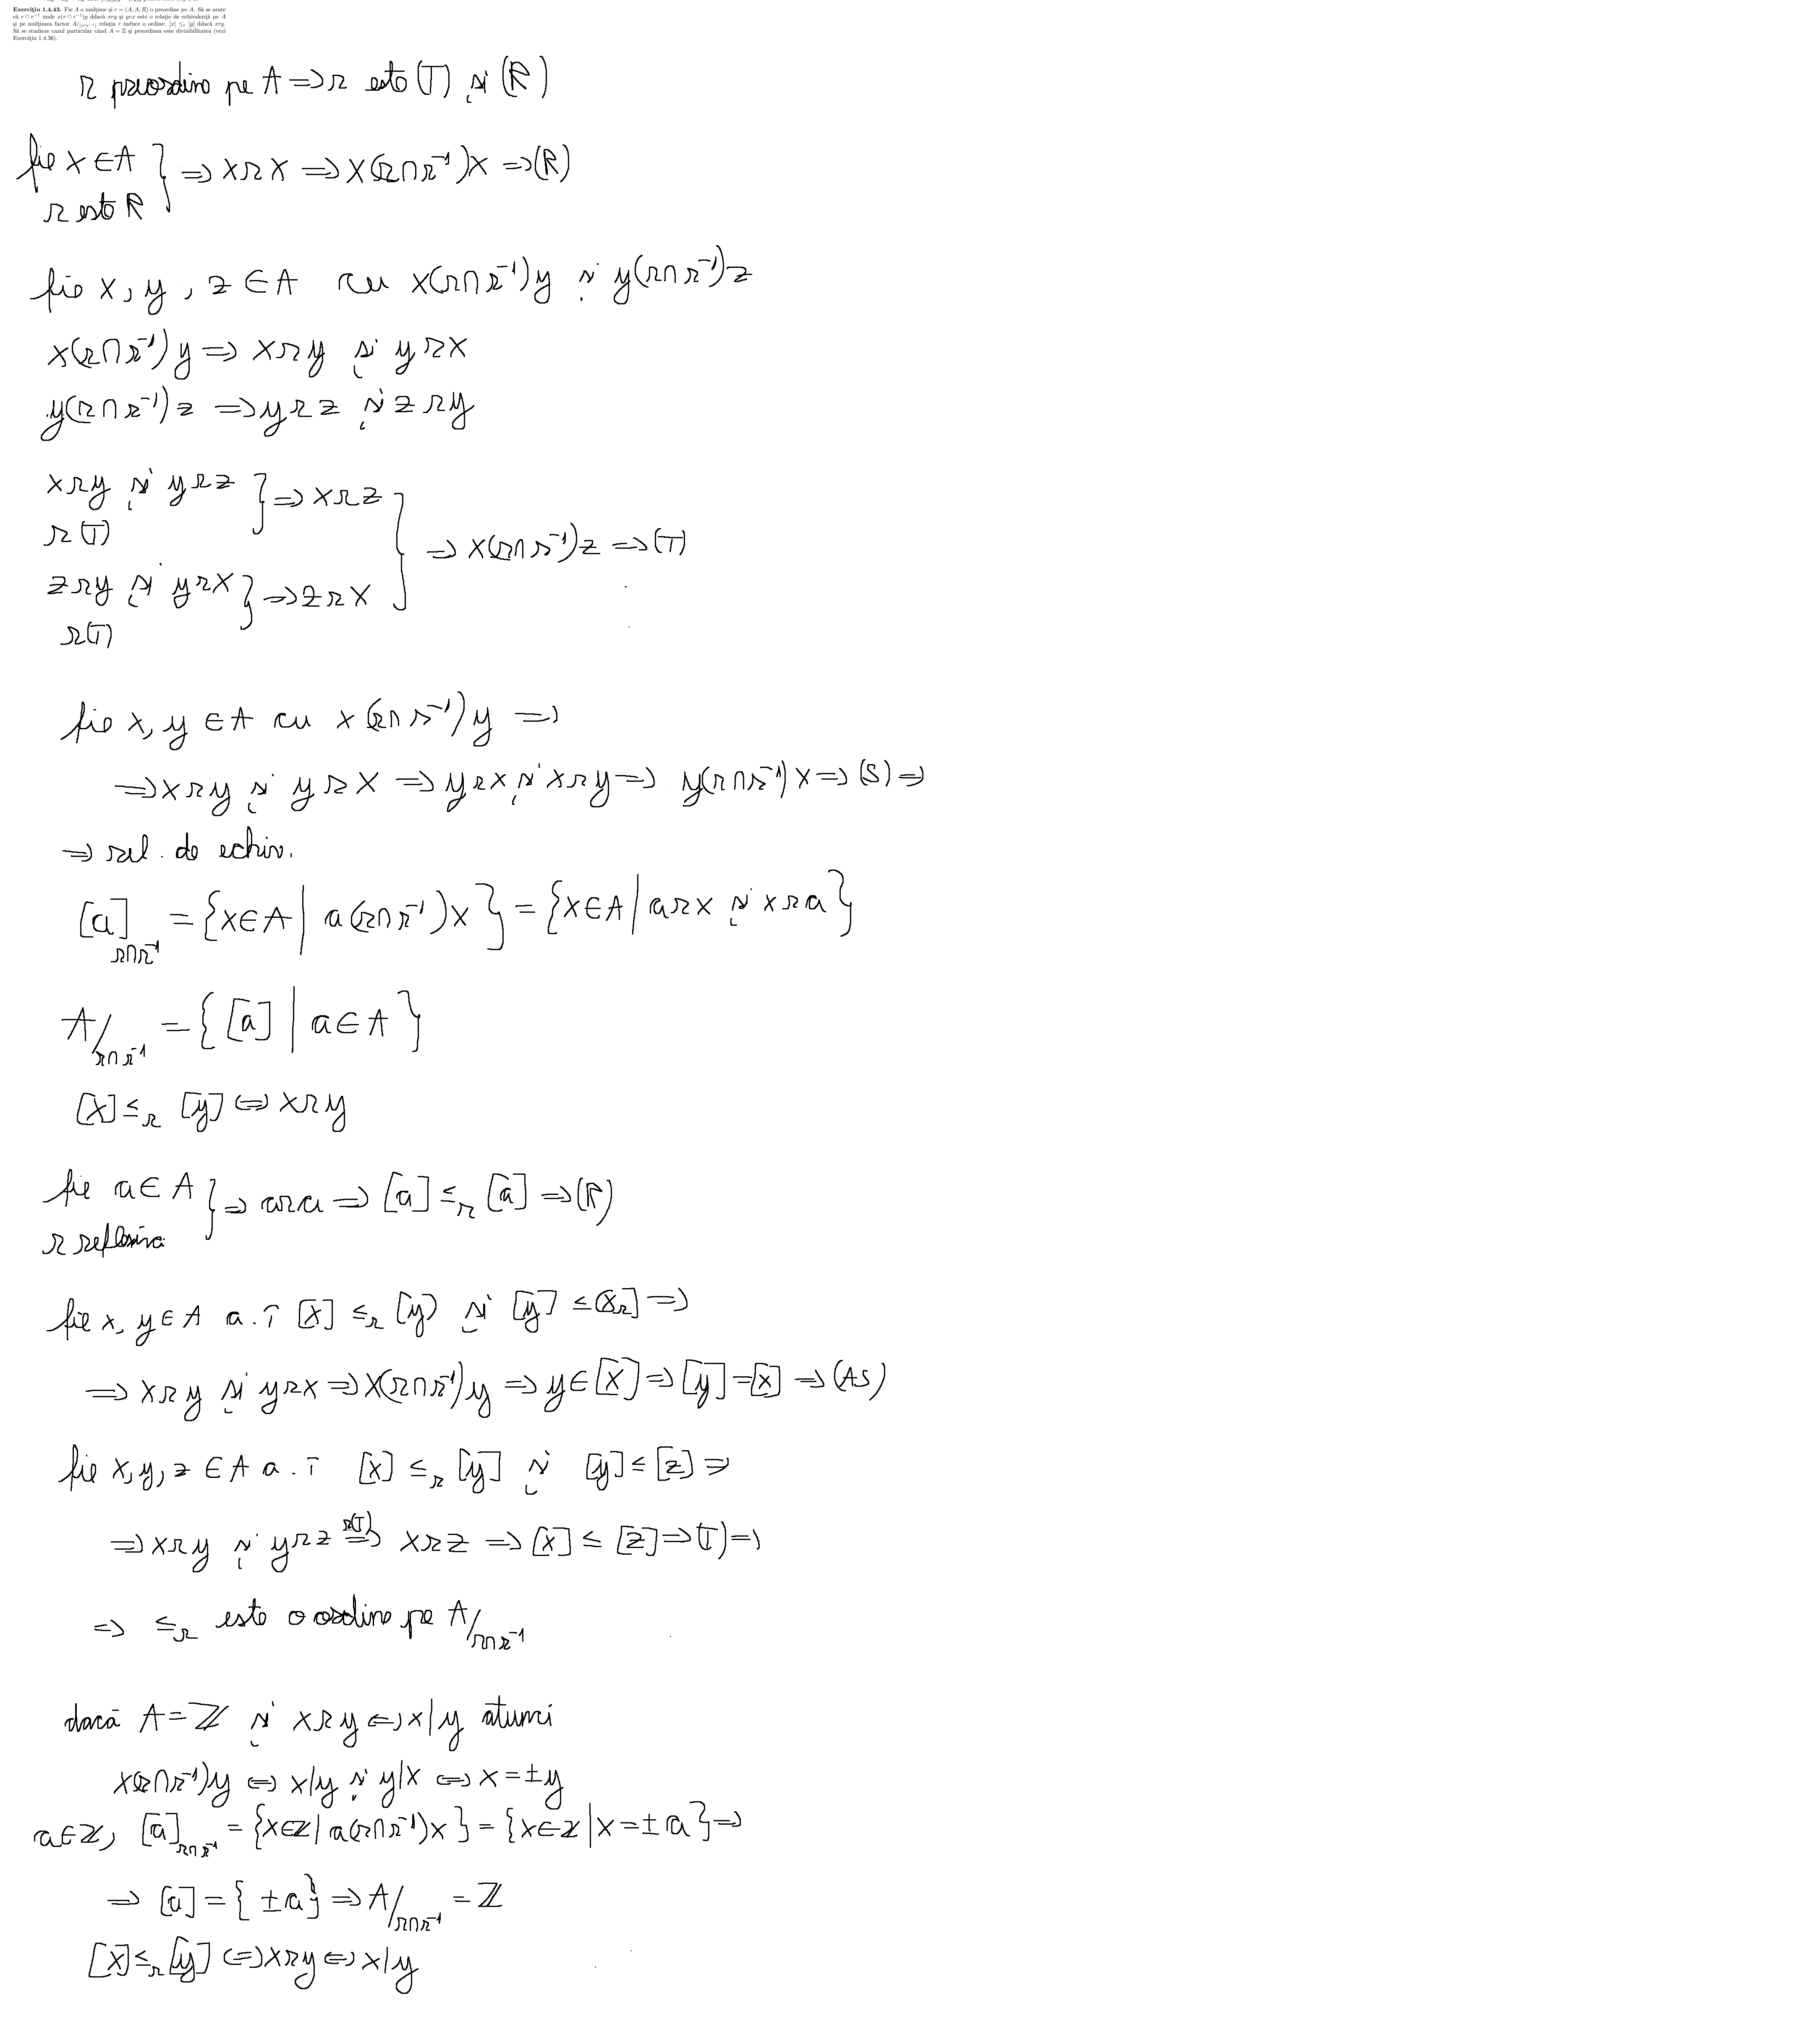 Exercițiu 1.4.43. Fie A o mulțime și r = (A, A, R) o preordine pe A. Să se arate
că r ∩ r⁻¹ unde x(r ∩ r⁻¹)y ddacă xry și yrx este o relație de echivalență pe A
și pe mulțimea factor A/(r∩r⁻¹) relația r induce o ordine: [x] ≤r [y] ddacă xry.
Să se studieze cazul particular când A = ℤ și preordinea este divizibilitatea (vezi
Exercițiu 1.4.36).
r preordine pe A => r este (T) și (R)
fie x ∈ A
r este R } => x r x => x(r∩r⁻¹)x => (R)
fie x, y, z ∈ A cu x(r∩r⁻¹)y și y(r∩r⁻¹)z
x(r∩r⁻¹)y => x r y și y r x
y(r∩r⁻¹)z => y r z și z r y
x r y și y r z } => x r z
r (T)
} => x(r∩r⁻¹)z => (T)
z r y și y r x } => z r x
r(T)
fie x, y ∈ A cu x(r∩r⁻¹)y =>
=> x r y și y r x => y r x și x r y => y(r∩r⁻¹)x => (S) =>
=> rel. de echiv.
[a]r∩r⁻¹ = {x∈A | a(r∩r⁻¹)x} = {x∈A | a r x și x r a}
A/r∩r⁻¹ = {[a] | a∈A}
[x] ≤r [y] <=> x r y
fie a∈A
r reflexiva } => a r a => [a] ≤r [a] => (R)
fie x, y ∈ A a.î [x] ≤r [y] și [y] ≤ [x r] =>
=> x r y și y r x => x(r∩r⁻¹)y => y∈[x] => [y]=[x] => (AS)
fie x, y, z ∈ A a.î [x] ≤r [y] și [y] ≤ [z] =>
=> x r y și y r z =r(T)=> x r z => [x] ≤ [z] => (T) =>
=> ≤r este o ordine pe A/r∩r⁻¹
dacă A = ℤ și x r y <=> x|y atunci
x(r∩r⁻¹)y <=> x|y și y|x <=> x = ±y
a∈ℤ, [a]r∩r⁻¹ = {x∈ℤ | a(r∩r⁻¹)x} = {x∈ℤ | x = ±a} =>
=> [a] = {±a} => A/r∩r⁻¹ = ℤ
[x] ≤r [y] <=> x r y <=> x|y